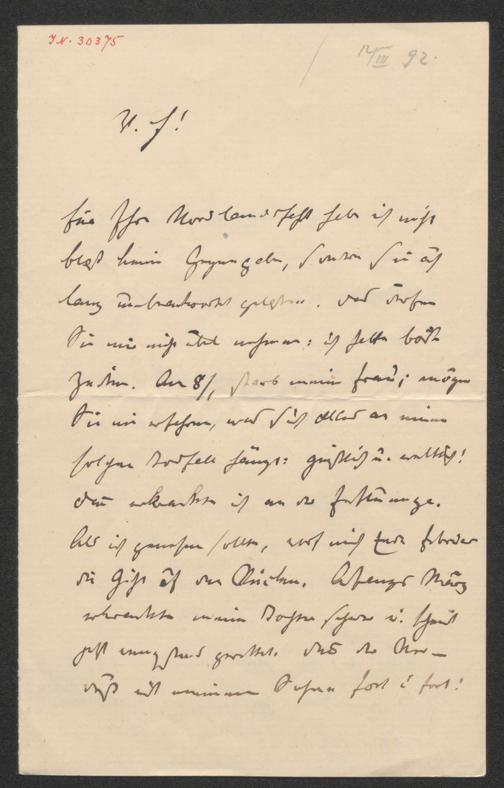 I.N. 30375
12/III 92.
V. F!
für Ihr Nordlandsheft habe ich nicht
bloß keine Gegengabe, sondern Sie auch
lang unbeantwortet gelassen. Das dürfen
Sie mir nicht übel nehmen: ich hatte böse
Zeiten. Am 8/1 starb meine Frau; mögen
Sie nie erfahren, was sich alles an einen
solchen Todfall hängt: geistlich u. weltlich!
dann erkrankte ich an der Influenza.
Als ich genesen sollte, warf mich Ende Februar
die Gicht auf den Rücken. Anfangs März
erkrankte meine Tochter schwer u. scheint
jetzt gerettet. Das
mit meinem fort u fort!